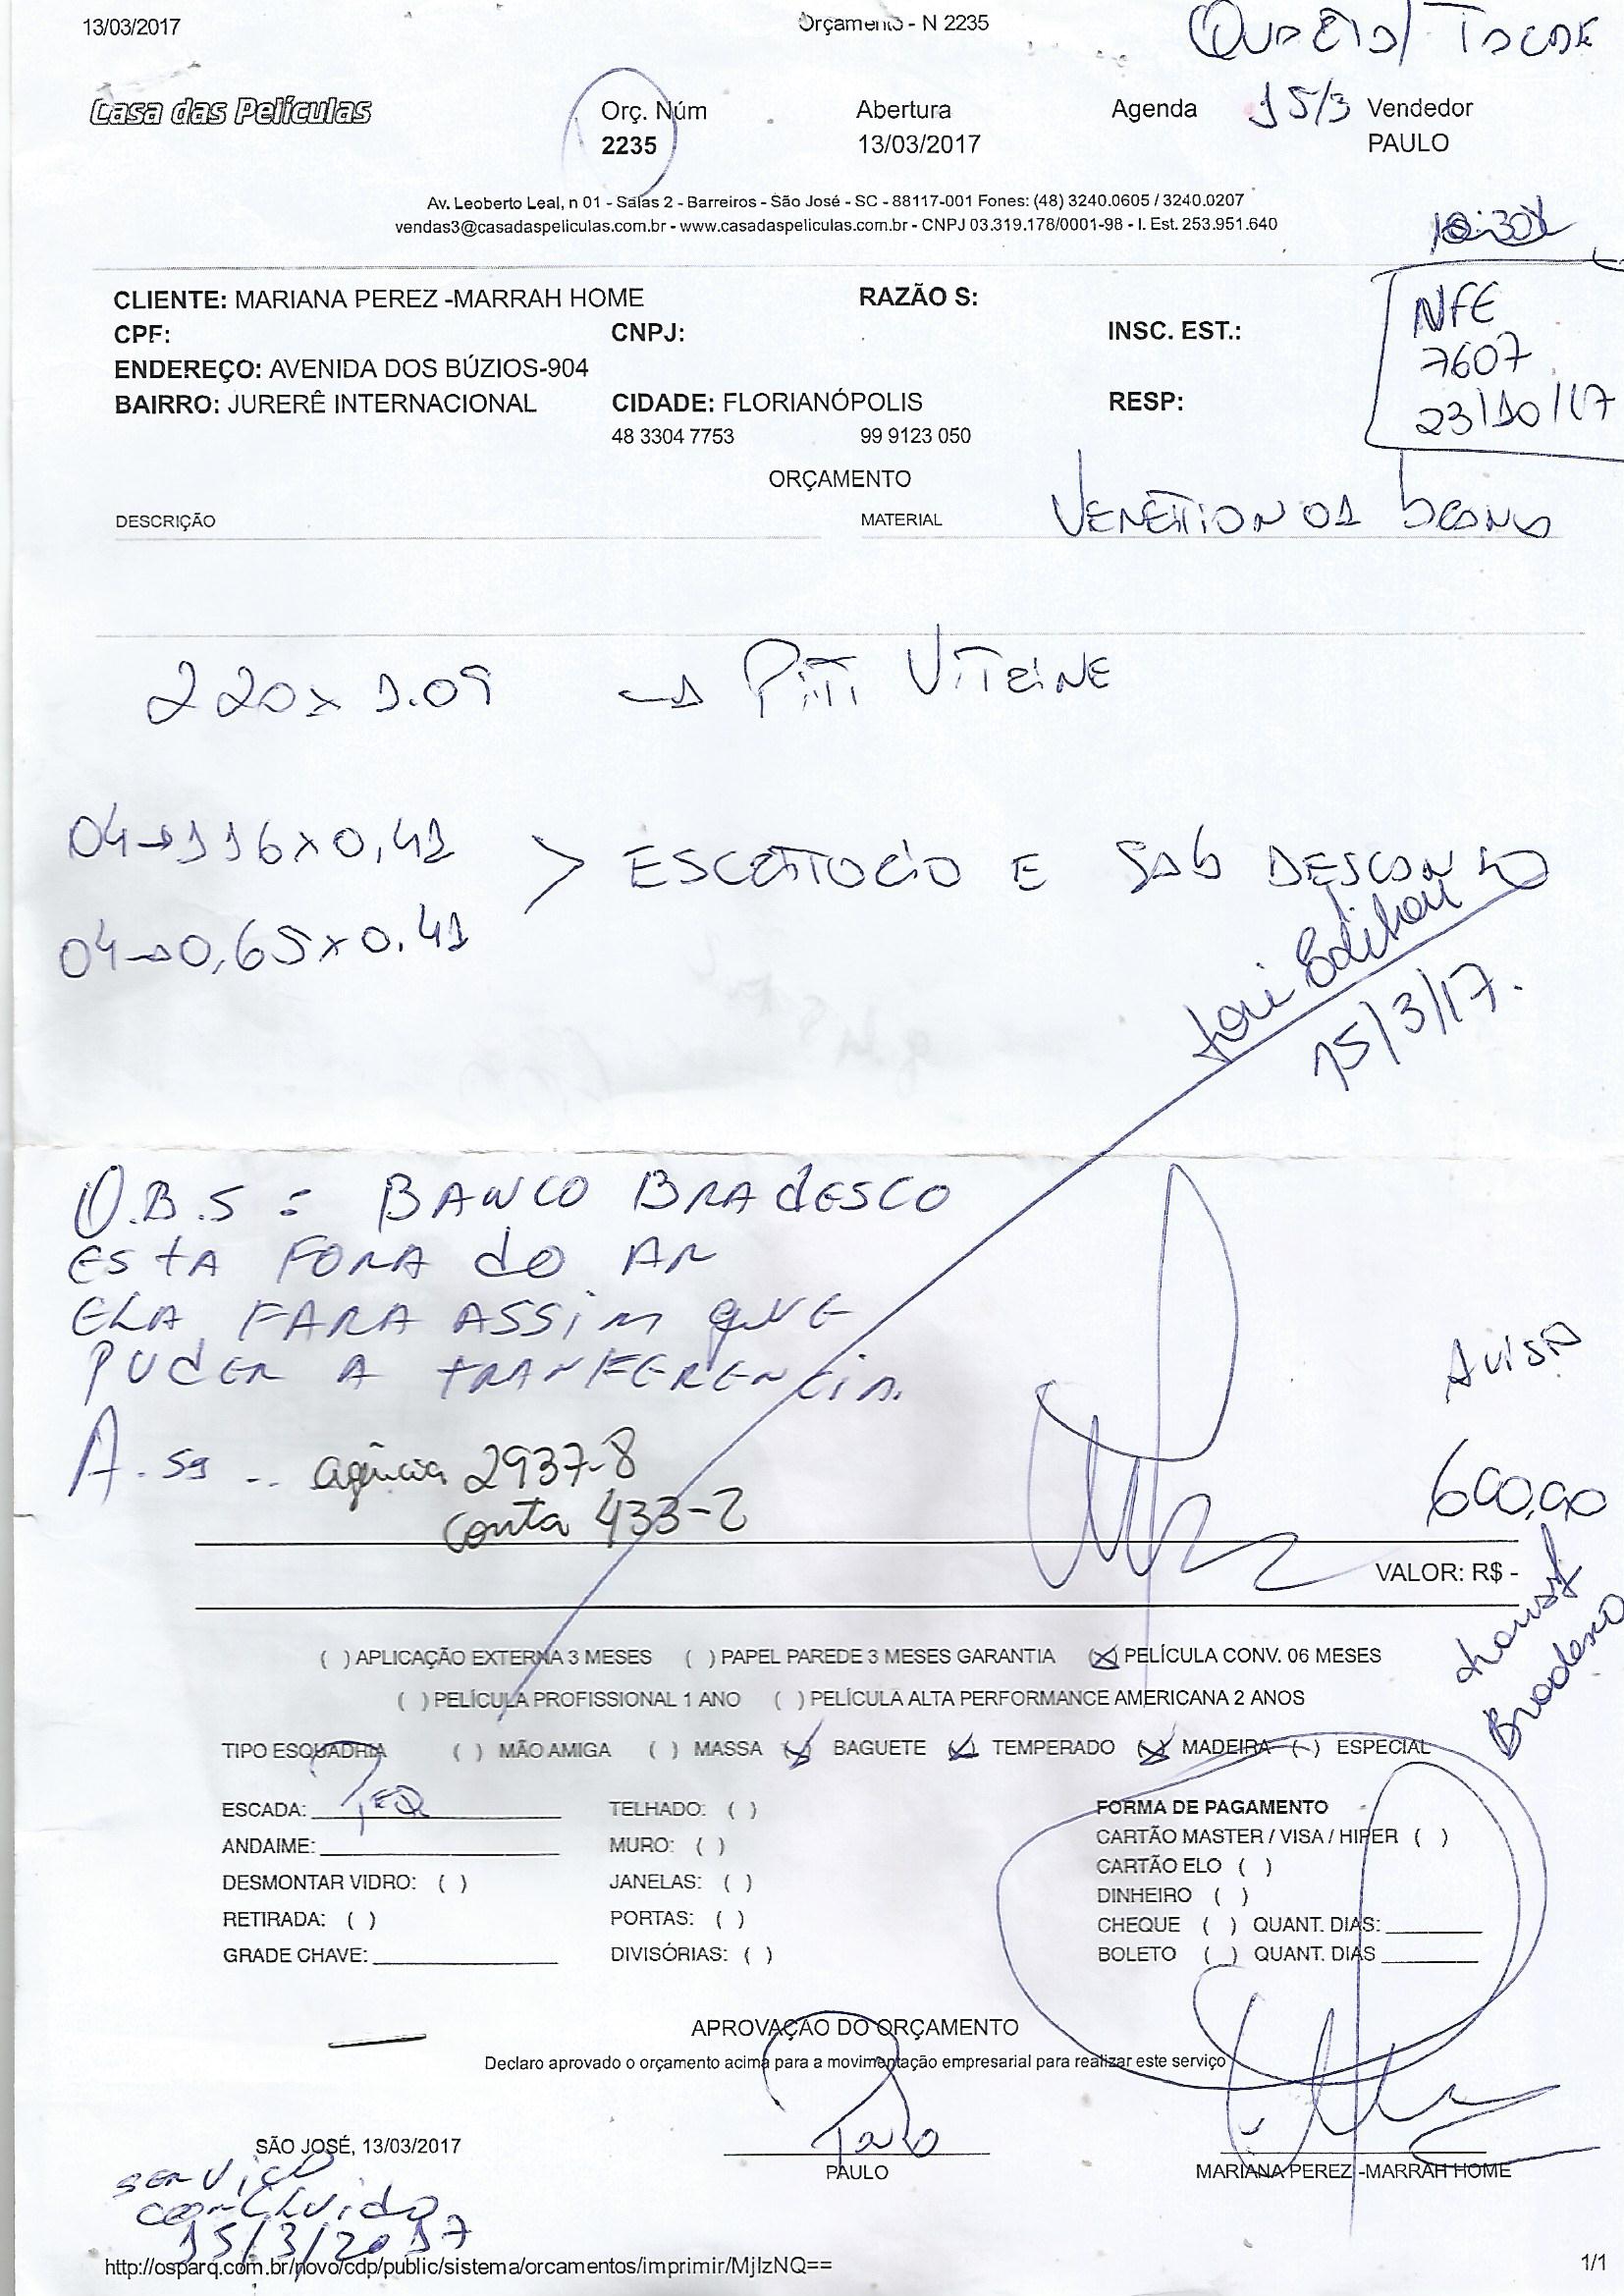 13/03/2017 Orçamento - N 2235
Casa das Películas
Orç. Núm Abertura Agenda 15/3 Vendedor
2235 13/03/2017 PAULO
Av. Leoberto Leal, n 01 - Salas 2 - Barreiros - São José - SC - 88117-001 Fones: (48) 3240.0605 / 3240.0207
vendas3@casadaspeliculas.com.br - www.casadaspeliculas.com.br - CNPJ 03.319.178/0001-98 - I. Est. 253.951.640
CLIENTE: MARIANA PEREZ -MARRAH HOME RAZÃO S:
CPF: CNPJ: INSC. EST.:
ENDEREÇO: AVENIDA DOS BÚZIOS-904
BAIRRO: JURERÊ INTERNACIONAL CIDADE: FLORIANÓPOLIS RESP:
48 3304 7753 99 9123 050
NFE
7607
23/10/17
ORÇAMENTO
DESCRIÇÃO MATERIAL
220x1.09 → VITRINE
04→116x0,41 > ESCRITORIO E
04→0,65x0.41
15/3/17.
O.B.S = BANCO BRADESCO
ESTA FORA do AR
ELA FARA ASSIM QUE
PUDER A TRANFERENCIA.
A. agência 2937-8
conta 433-2
Avista
600,00
VALOR: R$ -
Bradesco
( ) APLICAÇÃO EXTERNA 3 MESES ( ) PAPEL PAREDE 3 MESES GARANTIA (X) PELÍCULA CONV. 06 MESES
( ) PELÍCULA PROFISSIONAL 1 ANO ( ) PELÍCULA ALTA PERFORMANCE AMERICANA 2 ANOS
TIPO ESQUADRIA ( ) MÃO AMIGA ( ) MASSA (X) BAGUETE (X) TEMPERADO (X) MADEIRA ( ) ESPECIAL
ESCADA: TELHADO: ( ) FORMA DE PAGAMENTO
ANDAIME: MURO: ( ) CARTÃO MASTER / VISA / HIPER ( )
DESMONTAR VIDRO: ( ) JANELAS: ( ) CARTÃO ELO ( )
DINHEIRO ( )
RETIRADA: ( ) PORTAS: ( ) CHEQUE ( ) QUANT. DIAS:
GRADE CHAVE: DIVISÓRIAS: ( ) BOLETO ( ) QUANT. DIAS
APROVAÇÃO DO ORÇAMENTO
Declaro aprovado o orçamento acima para a movimentação empresarial para realizar este serviço
SÃO JOSÉ, 13/03/2017
Paulo
PAULO MARIANA PEREZ -MARRAH HOME
SERViçO
CONCLUido
15/3/2017
http://osparq.com.br/novo/cdp/public/sistema/orcamentos/imprimir/MjIzNQ== 1/1